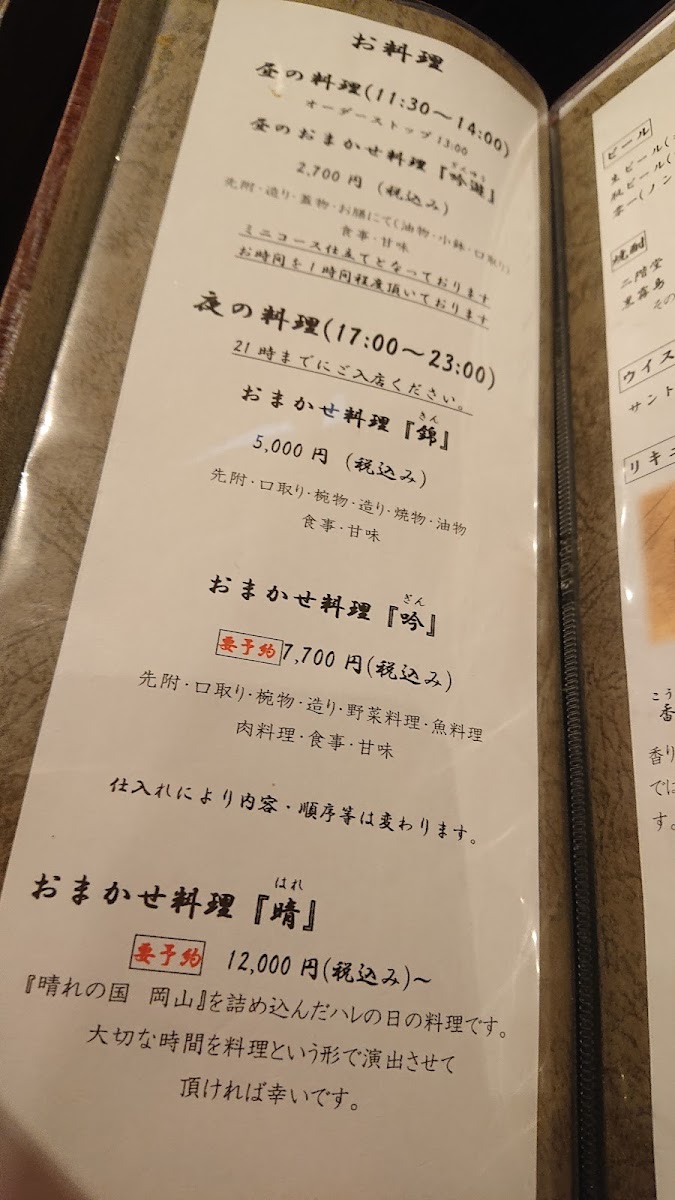 お料理
昼の料理(11:30～14:00)
オーダーストップ 13:00
昼のおまかせ料理『吟遊』
2,700 円 (税込み)
先附・造り・蓋物・お膳にて(油物・小鉢・口取り)
食事・甘味
ミニコース仕立てとなっております
お時間を1時間程度頂いております
夜の料理(17:00～23:00)
21時までにご入店ください。
きん
おまかせ料理『錦』
5,000 円 (税込み)
先附・口取り・椀物・造り・焼物・油物
食事・甘味
ぎん
おまかせ料理『吟』
要予約 7,700 円(税込み)
先附・口取り・椀物・造り・野菜料理・魚料理
肉料理・食事・甘味
仕入れにより内容・順序等は変わります。
はれ
おまかせ料理『晴』
要予約 12,000 円(税込み)～
『晴れの国 岡山』を詰め込んだハレの日の料理です。
大切な時間を料理という形で演出させて
頂ければ幸いです。
ビール
生ビール(
瓶ビール(
零一(ノン
焼酎
二階堂
黒霧島
その
ウイス
サント
リキュ
こう
香
香り
では
す。